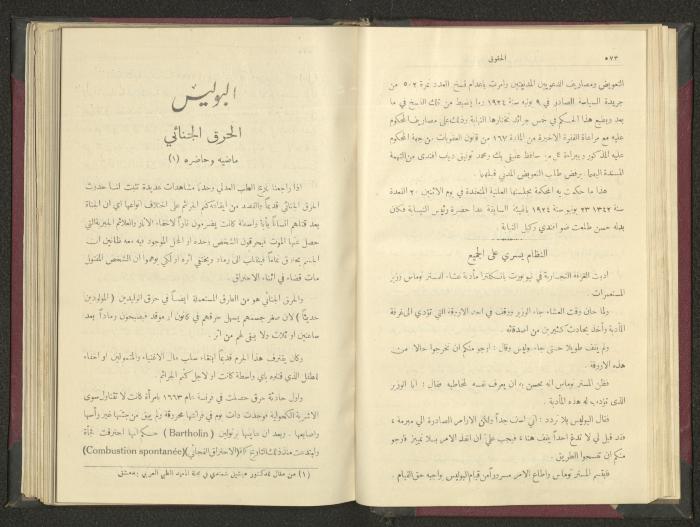 ٥٧٣
الحقوق
التعويض ومصاريف الدعويين المدنيتين وأمرت باعدام نسخ العدد نمرة ٥٠٢ من
جريدة السياسة الصادر في ٩ يونيه سنة ١٩٢٤ وما يضبط من تلك النسخ في ما
بعد وبطبع هذا الحكم في خمس جرائد تختارها النيابة وذلك على مصاريف المحكوم
عليه مع مراعاة الفقرة الاخيرة من المادة ١٦٧ من قانون العقوبات من جهة المحكوم
عليه المذكور وببراءة كل من حافظ عفيفي بك ومحمد توفيق دياب افندى من التهمة
المسندة اليهما ورفض طلب التعويض المدني قبلهما
هذا ما حكمت به المحكمة بجلستها العلنية المنعقدة في يوم الاثنين ٢٠ القعدة
سنة ١٣٤٢ ٢٣ يونيو سنة ١٩٢٤ بالهيئة السابقة عدا حضرة رئيس النيابة فكان
بدله حسن طلعت ضو افندي وكيل النيابة .
النظام يسري على الجميع
أدبت الغرفة التجارية في نيو بورت بانكلترا مأدبة عشاء للمستر توماس وزير
المستعمرات .
ولما حان وقت العشاء جاء الوزير ووقف في احد الاروقة التي تؤدي الى غرفة
المأدبة وأخذ يحادث كثيرين من اصدقائه .
ولم يقف طويلا حتى جاء بوليس وقال : ارجو منكم ان تخرجوا حالا من
هذه الاروقة .
فظن المستر توماس انه يحسن به ان يعرف نفسه لمخاطبه فقال : أنا الوزير
الذي تؤدب له هذه المأدبة .
فقال البوليس بلا تردد : اني آسف جداً ولكن الاوامر الصادرة الي مبرمة ؛
فقد قيل لي لا تدع احداً يقف هنا ؛ فيجب علي ان انفذ الامر بلا تمييز فارجو
منكم ان تفسحوا الطريق .
فابتسم المستر توماس واطاع الامر مسروراً من قيام البوليس بواجبه حق القيام .
البوليس
الحرق الجنائي
ماضيه وحاضره (١)
اذا راجعنا تاريخ الطب العدلي وجدنا مشاهدات عديدة تثبت لنا حدوث
الحرق الجنائي قديماً والقصد من ايقاده كتم الجرائم على اختلاف انواعها اي ان الجناة
بعد قتلهم انساناً بأية واسطة كانت يضرمون ناراً لاخفاء الآثار والعلائم الجبرية التي
حصل عنها الموت فيحرقون الشخص وحده او المحل الموجود فيه معه ظانين ان
الجسم يحترق تماماً فينقلب الى رماد ويختفي اثره او لكي يوهموا ان الشخص المقتول
مات قضاء في اثناء الاحتراق .
والحرق الجنائي هو من الطرق المستعملة ايضاً في حرق الوليدين ( المولودين
حديثاً ) لان صغر جسمهم يسهل حرقهم في كانون او موقد فيصبحون رماداً بعد
ساعتين او ثلاث ولا يبقى لهم من اثر .
وكان يقترف هذا الجرم قديماً ابتغاء سلب مال الاغنياء والمتمولين او اخفاء
لطفل الذي قتلوه باي واسطة كانت او لاجل كتم الجرائم .
واول حادثة حرق حصلت في فرنسة عام ١٦٦٣ بامرأة كانت لا تتناول سوى
الاشربة الكحولية فوجدت ذات يوم في فراشها محروقة ولم يبق من جثتها غير رأسها
واصابعها . وبعد ان عاينها برتولين ( Bartholin ) حكم انها احترقت فجأة
وابتدعت منذ ذلك التاريخ كلمة (الاحتراق الفجائي)(Combustion spontanée)
(١) من مقال للدكتور ميشيل شمندي في مجلة المعهد الطبي العربي بدمشق